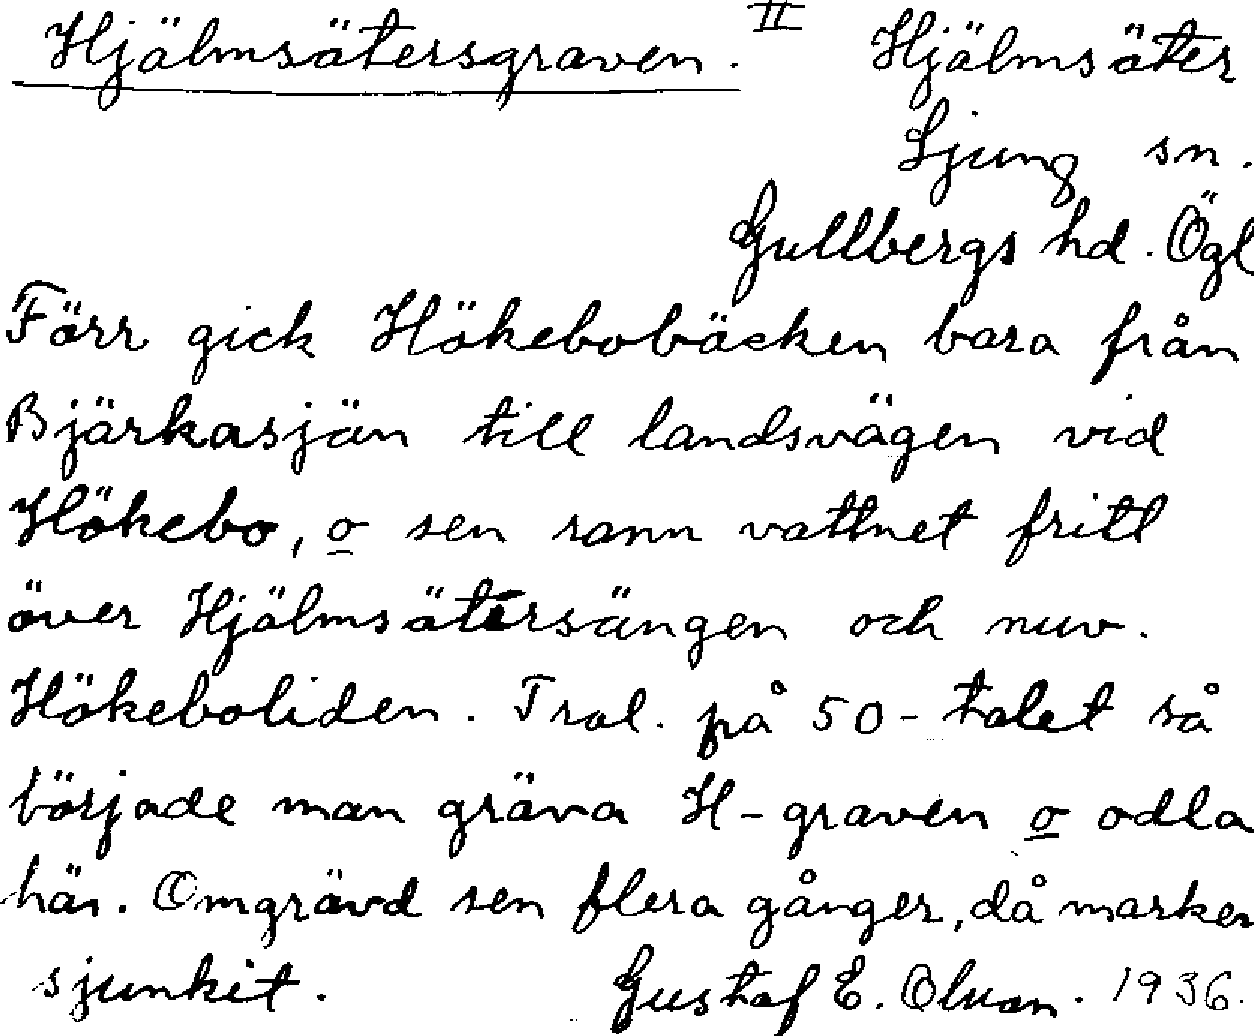 Hjälmsätersgraven. II Hjälmsäter
Ljung sn.
Gullbergs hd. Ögl
Förr gick Hökebobäcken bara från
Bjärkasjön till landsvägen vid
Hökebo, o sen rann vattnet fritt
över Hjälmsätersängen och nuv.
Hökeboliden. Trol. på 50-talet så
började man gräva H-graven o odla
här. Omgrävd sen flera gånger, då marken
sjunkit. Gustaf E. 1936.